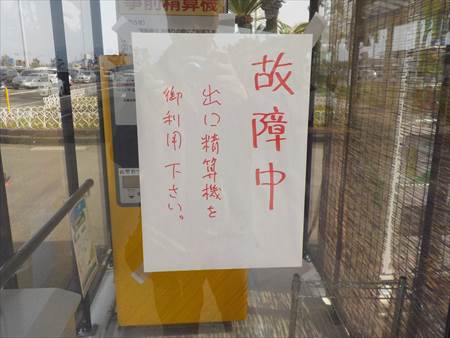 事前精算機
故障中
出口精算機を
御利用下さい。